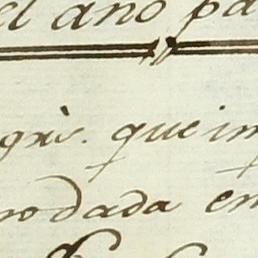 el año pa
gris. que im
modada en